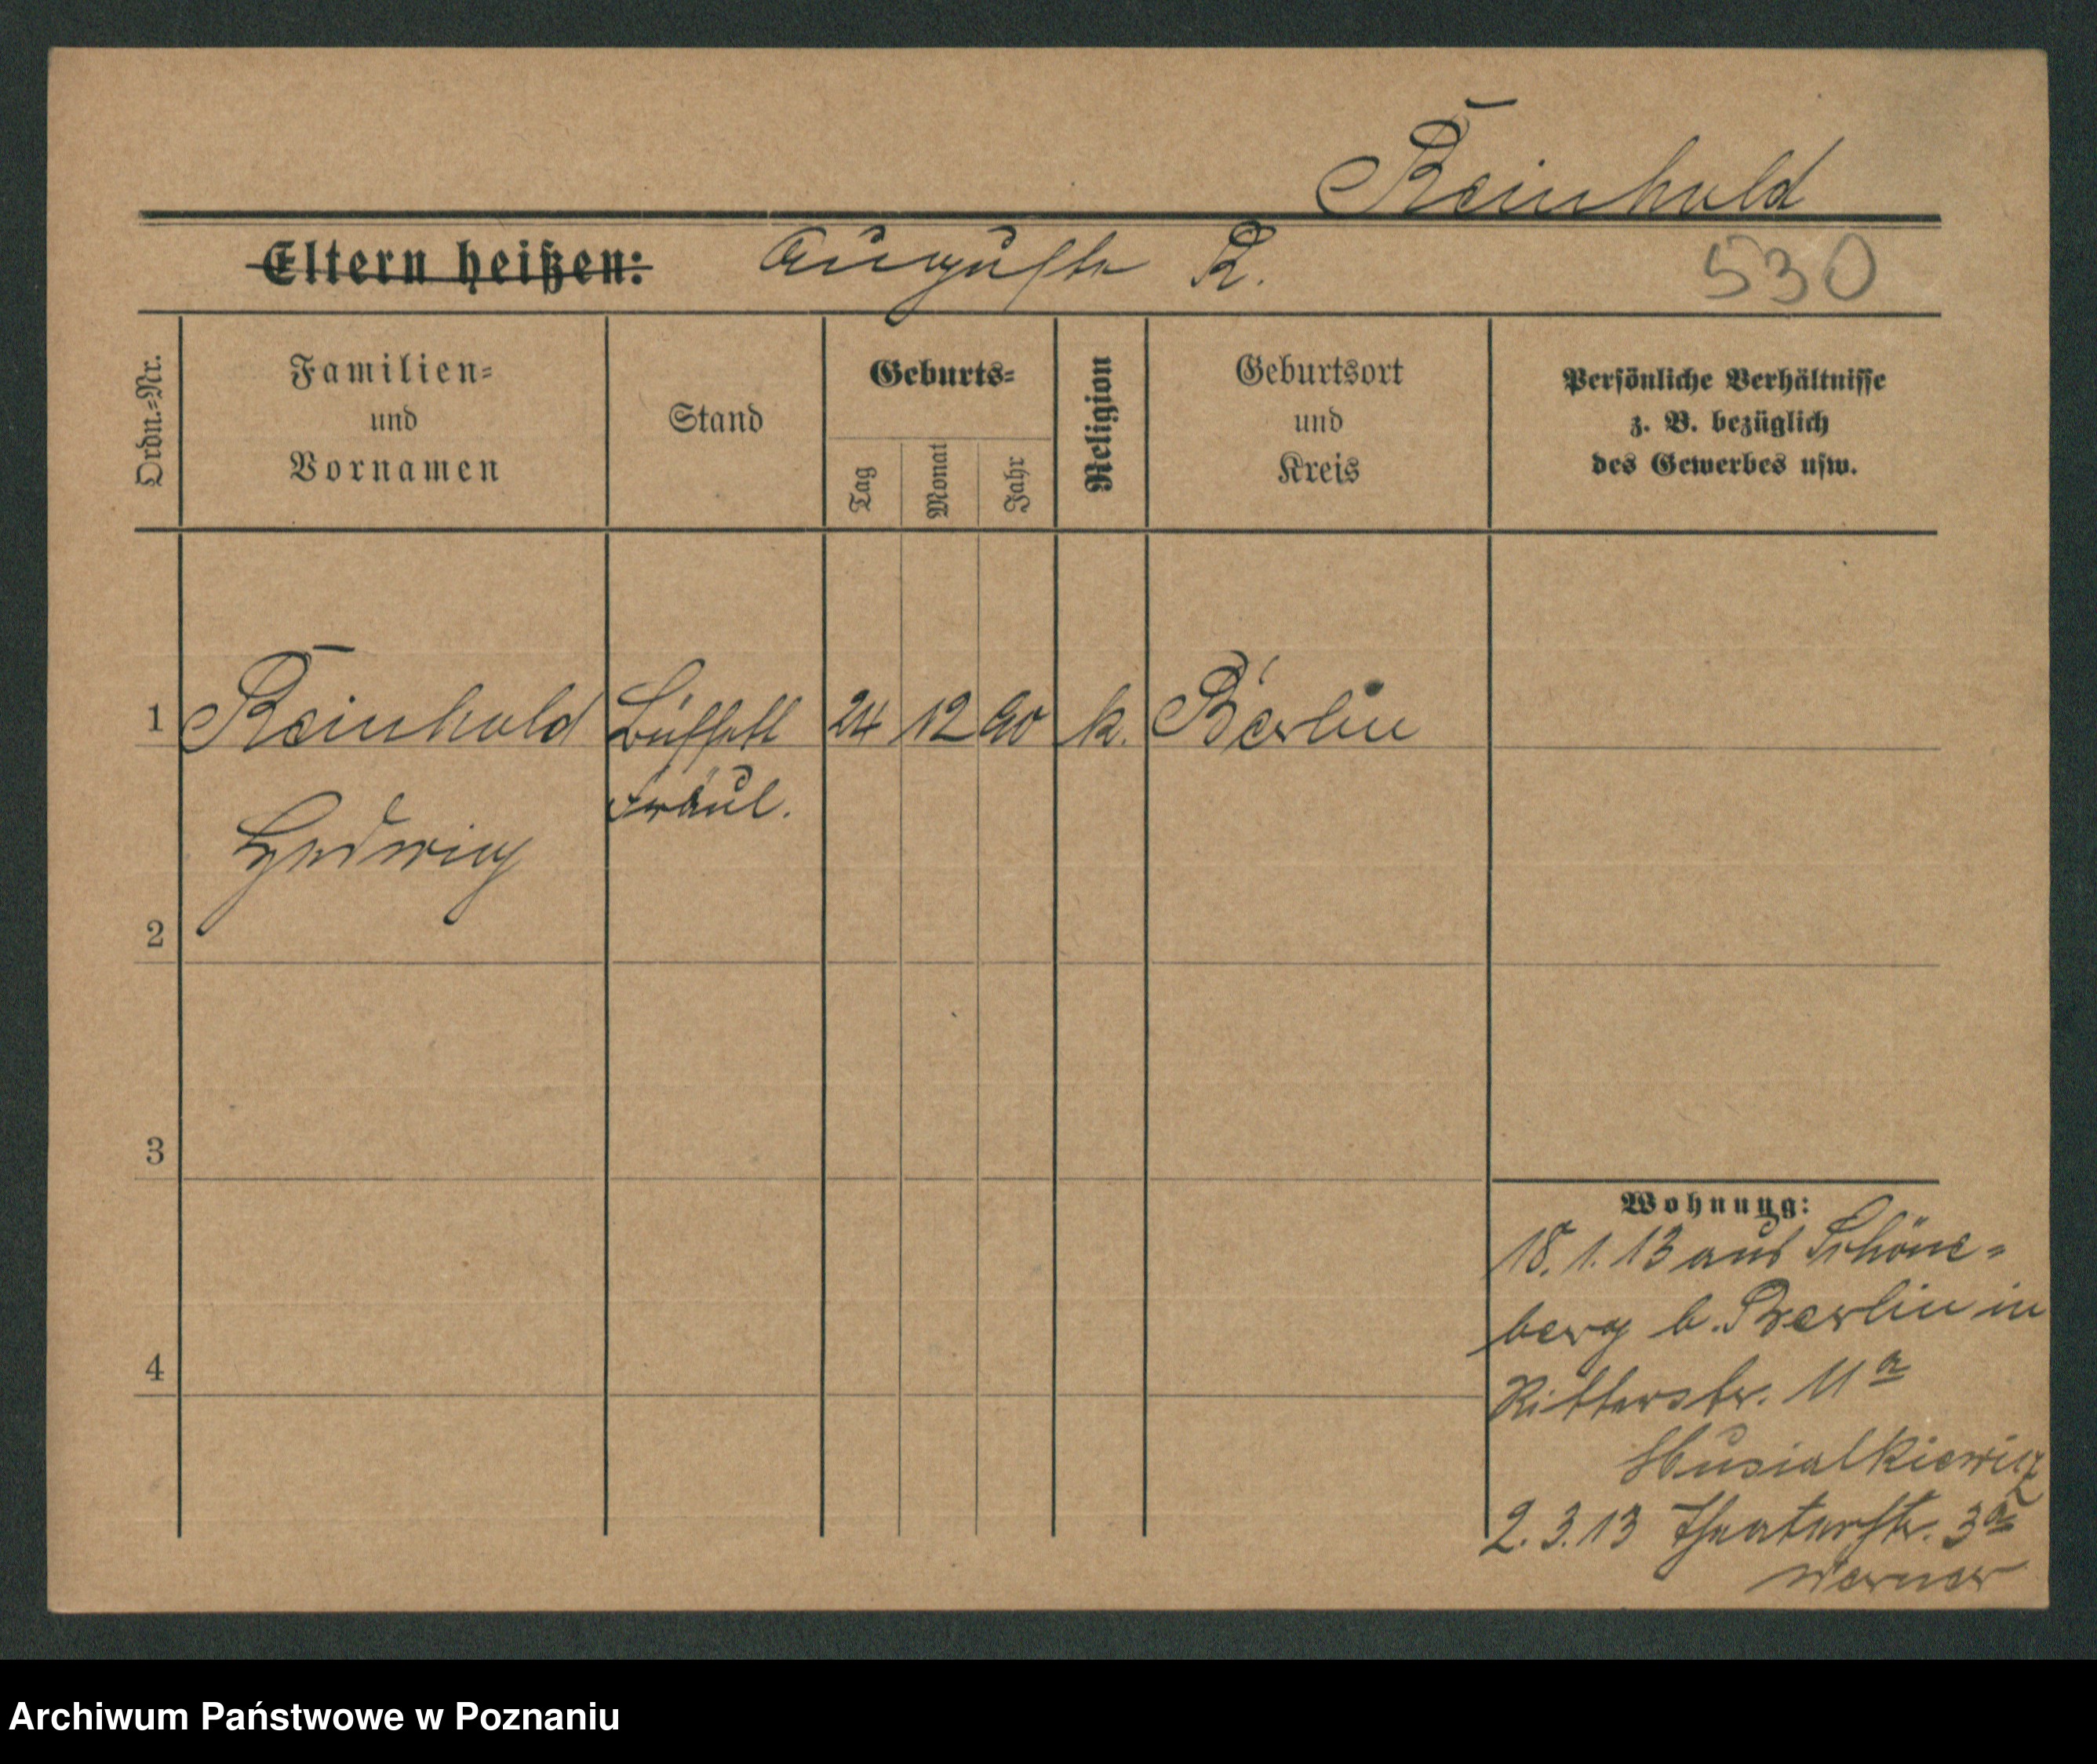 Reinhold
Eltern heißen: Auguste R. 530
Ordn.=Nr.
Familien=
und
Vornamen
Stand
Geburts=
Tag
Monat
Jahr
Religion
Geburtsort
und
Kreis
Persönliche Verhältnisse
z. B. bezüglich
des Gewerbes usw.
1 Reinhold Büffett 24 12 90 k. Berlin
Fräul.
Hedwig
2
3
4
Wohnung:
18.1.13 aus Schöne=
berg b. Berlin in
Ritterstr. 11a
Musialkiewicz
2.3.13 Theaterstr. 3a
Werner
Archiwum Państwowe w Poznaniu